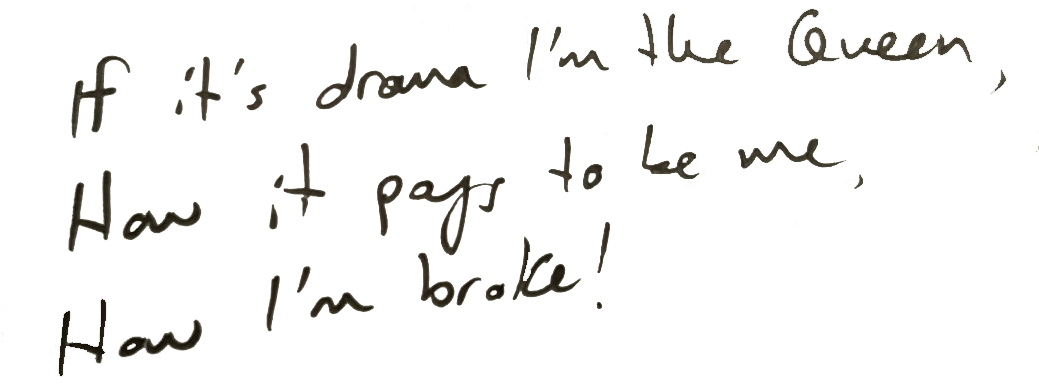 If it's drama I'm the Queen,
How it pays to be me,
How I'm broke!